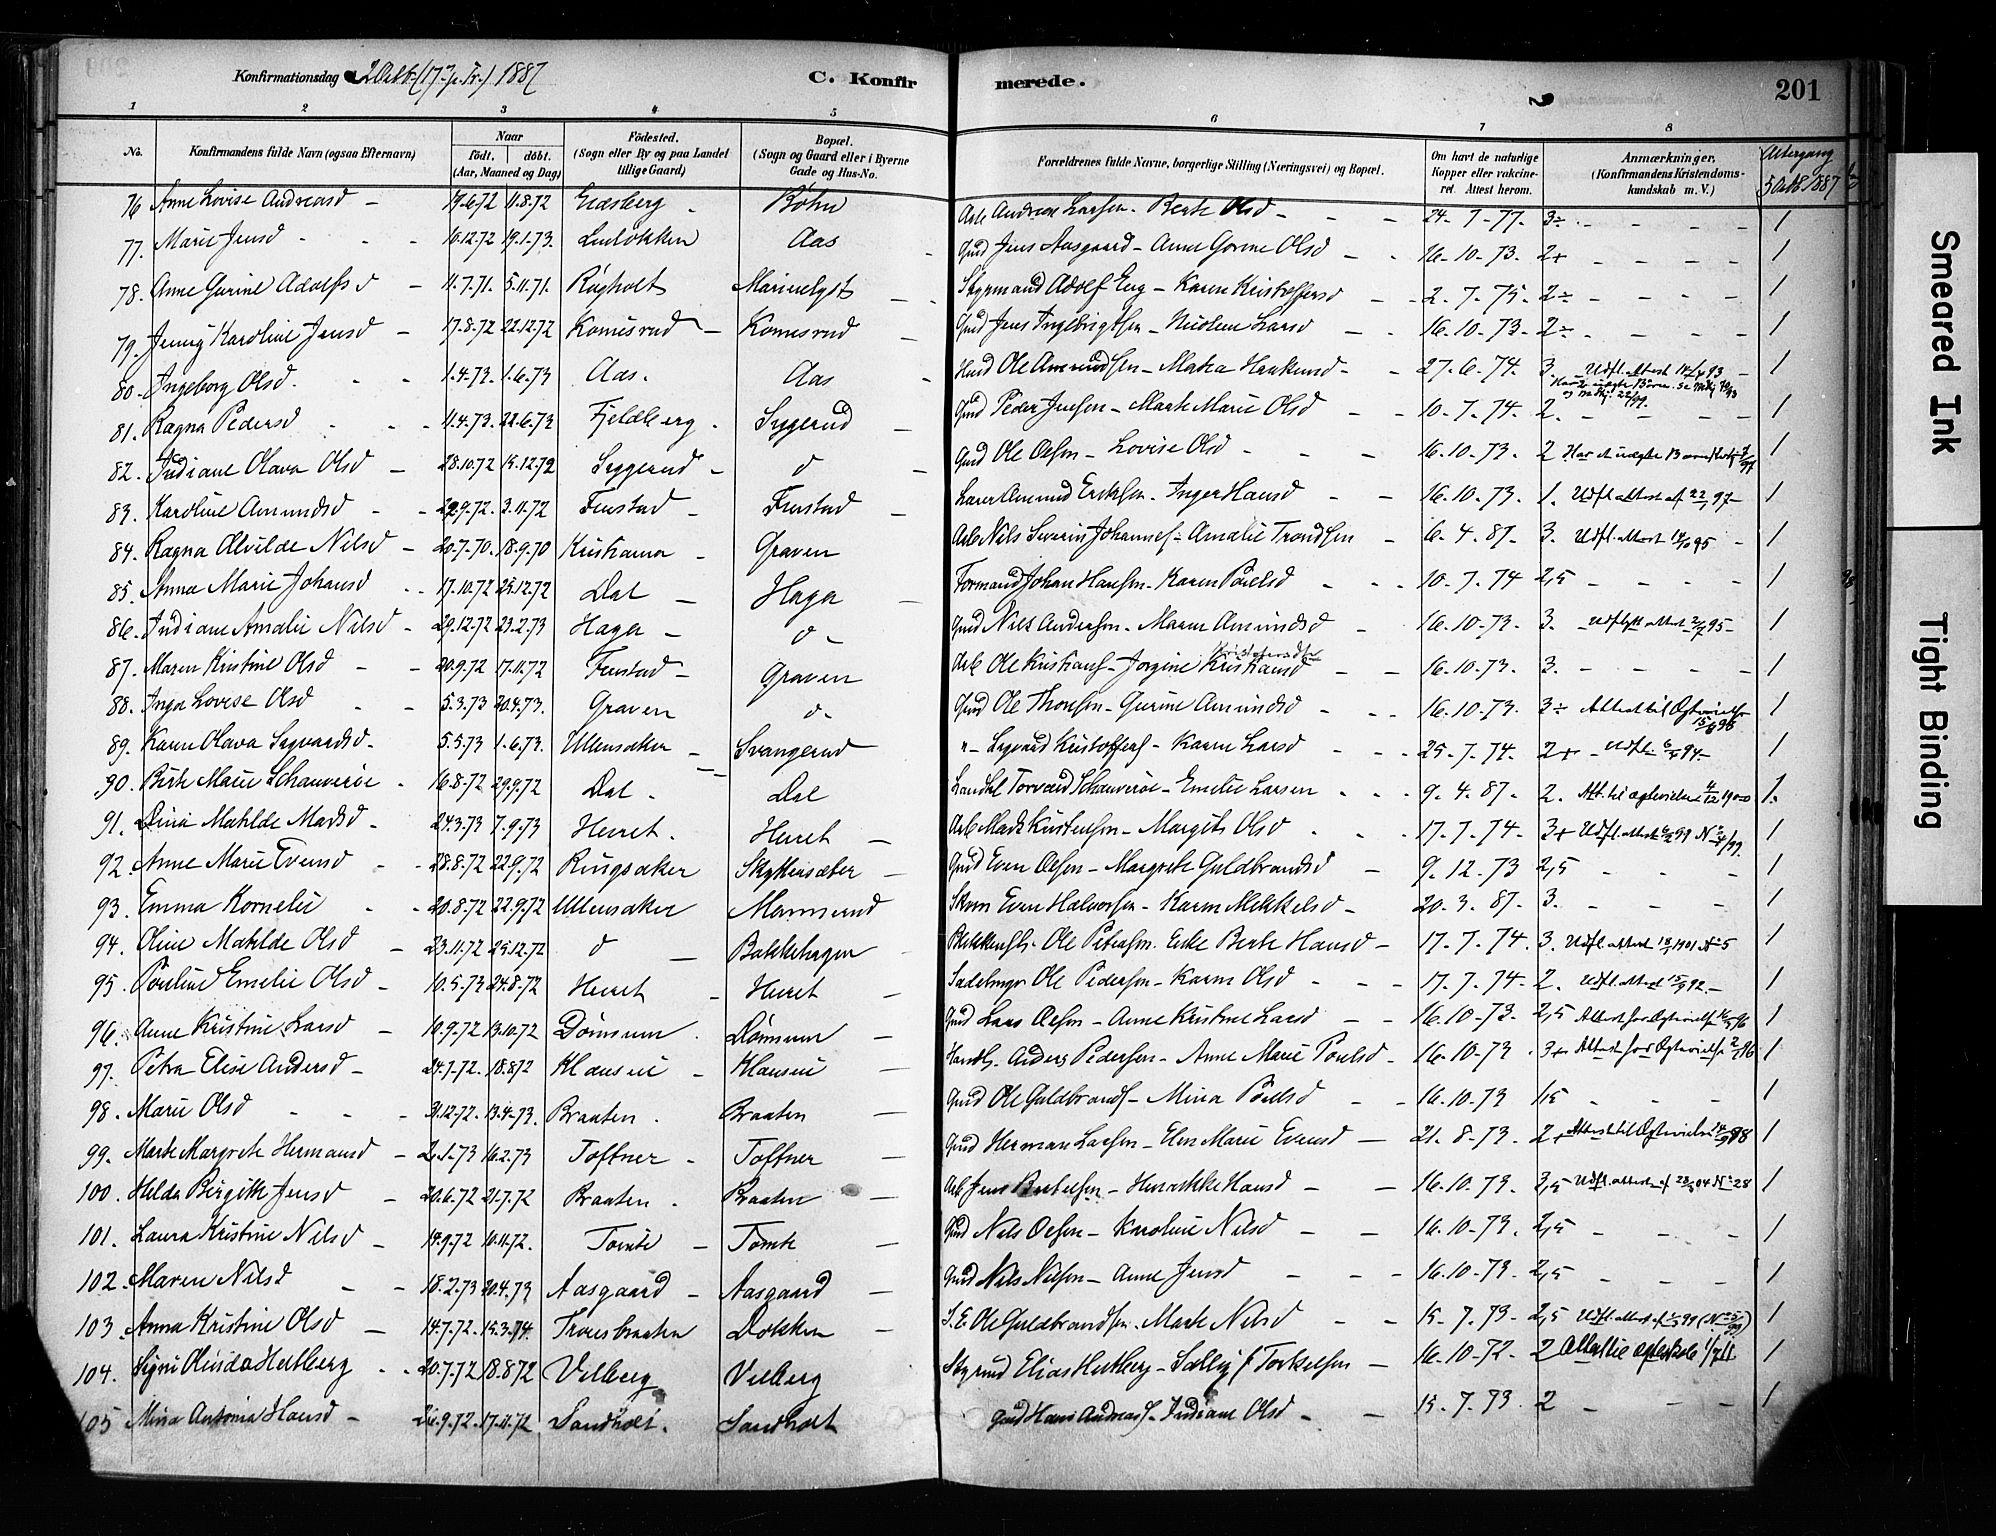 Konfirmationsdag 2 Octb. (17 p. Tr.) 1887 C. Konfirmerede. 201
1 2 3 4 5 6 7 8
No. Konfirmandens fulde Navn (ogsaa Efternavn) Naar født, døbt. (Aar, Maaned og Dag) Födested. (Sogn eller By og paa Landet tillige Gaard) Bopæl. (Sogn og Gaard eller i Byerne Gade og Hus-No. Forældrenes fulde Navne, borgerlige Stilling (Næringsvei) og Bopæl. Om havt de naturlige Kopper eller vaccineret. Attest herom. Anmærkninger, (Konfirmandens Kristendomskundskab m. V.) Altergang 5 Octb 1887
76 Anne Lovise Andreasd - 19.6.72 11.8.72 Eidsberg Böhn Arb Andreas Larsen - Berte Olsd - 24-7-77. 3÷ 1
77. Marie Jensd - 10.12.72 19.1.73. Aas Gmd Jens Aasgaard - Anne Gorine Olsd - 16-10-73. 2+ 1
78. Anne Gurine Adolfsd - 11.7.71. 5.11.71. Rögholt Marienlyst Styrmand Adolf Eng - Karen Kristoffersd - 2-7-75. 2÷ 1
79. Jenny Karoline Jensd - 17.8.72 22.12.72 Komisrud - Komesrud Gmd Jens Ingebrigtsen - Nicoline Larsd - 16-10-73 - 2÷ 1
80. Ingeborg Olsd. 1.4.73. 1.6.73 Aas. Aas Hmd Ole Amundsen - Mathea Haakensd - 27-6-74. 3. Udfl. Attest 93 1
81. Ragna Pedersd 11.4.73. 22.6.73 Fjeldberg. Sygerud Gmd Peder Jensen - Marte Marie Olsd - 10-7-74. 2. 1
82. Indiane Olava Olsd - 28.10.72 15.12.72 Syggerud - d Gmd Ole Olsen - Lovise Olsd - 16.10-73. 2 Har et uægte Barn 1
83. Karoline Amundsd - 22.9.72. 3.11.72 Fenstad - Fenstad Lærer Amund Eriksen - Inger Hansd - 16.10-73. 1. Udfl. attest af 97 1
84. Ragna Alvilde Nilsd - 20.7.70. 18.9.70 Kristiania - Graven Arb Nils Severin Johannes. - Amalie Trondsen - 6-4.87. 3. Udfl. attest 95 1
85. Anna Marie Johansd 17.10.72 25.12.72 Dal - Haga Formand Johan Hansen - Karen Paulsd 10-7-74 2,5 1
86. Indiane Amalie Nilsd - 29.12.72 23.2.73 Haga - d - Gmd Nils Andersen - Maren Amundsd - 16-10-73. 3. Udflytt attest 95 1
87. Maren Kristine Olsd - 20.9.72 17.11.72 Fenstad - Graven Arb Ole Kristians - Jorgine Kristiansd - 16-10-73. 3. 1
88. Inga Lovise Olsd 5.3.73 20.4.73. Graven d - Gmd Ole Thonsen - Gurine Amundsd - 16.10.73. 3÷ Attest til Ægtevielse 96 1
89. Karen Olava Sygvardsd - 5.5.73 1.6.73. Ullensaker - Svangerud " - Sygvard Kristoffers - Karen Larsd 25-7-74. 2+ Udfl. 94 1
90. Berte Marie Schauveröe - 16.8.72 29.9.72 Dal - Dal Landhl Torvard Schauveröe - Emelie Larsen - 9-4.87. 2. Att. til Ægtevielse 1900 1.
91. Dina Matilde Madsd - 24.3.73 7.9.73 Herret. Herret - Arb Mads Kristensen - Margit Olsd 17.7.74. 3+ Udfl. attest 99 1
92. Anne Marie Evensd - 28.8.72 22.9.72 Ringsaker Skytteræter - Gmd Even Olesen - Margrete Guldbrandsd - 9.12.73 2,5 1
93. Emma Kornelie - 20.8.72 22.9.72 Ullensaker Mormerud Skom Even Halvorsen - Karen Mikkelsd - 20-3.87. 3. 1
94. Oline Matilde Olsd - 23.11.72 25.12.72 d - Bakkehagen Ole Petersen. Enke Berte Hansd - 17.7.74. 3. Udfl. attest 1901 1
95. Pauline Emelie Olsd - 10.5.73 24.8.72 Herret - Herret - Sadelmgr Ole Pedersen - Karen Olsd - 17.7.74 - 2. Udfl. attest 92 1
96. Anne Kristine Larsd - 19.9.72 13.10.72 Dömsum Dömsum - Gmd Lars Olsen - Anne Kristine Larsd - 16.10-73. 2,5 Attest for Ægtevielse 96 1
97. Petra Elise Andersd - 24.7.72. 18.8.72 Klausein - Klausein - Handl. Anders Pedersen - Anne Marie Paulsd - 16-10-73. 3+ Attest for Ægtevielse 96 1
98. Marie Olsd - 31.12.72. 13.4.73. Braaten. Braaten - Gmd Ole Guldbrands - Mina Paulsd - 16-10-73 1,5 1
99. Marte Margrete Hermansd - 2.1.73 16.2.73 Toftner - Toftner - Gmd Herman Larsen - Elen Marie Evensd - 21-8-73. 2+ Attest til Ægtevielse 98 1
100. Helda Birgitte Jensd - 20.6.72 21.7.72 Braaten. Braaten - Arb Jens Bertelsen - Henrikke Hansd - 16.10.73. 3,5 Udfl. attest af 04 No 28 1
101. Laura Kristine Nilsd - 14.9.72 10.11.72. Tomte - Tomte - Gmd Nils Olsen - Karoline Nilsd - 16.10.73. 2,5 1
102. Maren Nilsd - 18.2.73 20.4.73 Aasgaard - Aasgaard - Gmd Nils Nilsen - Anne Jensd - 16.10-73. 2,5 1
103 Anna Kristine Olsd - 14.7.72. 15.3.74. Tronsbraaten Dokken - S.E. Ole Guldbrandsen. Marte Nilsd - 15.7.73. 2,5 Udfl. attest af 99 1
104. Signe Olinda Hertberg - 20.7.72 18.8.72 Vilberg Vilberg Styrmd Elias Hertberg - Sally f. Torkelsen - 16-10-72 - 2 Attest til ægteskab 1
105 Mina Antonia Hansd - 26.9.72. 17.11.72 Sandholt. Sandholt Gmd Hans Andreas. - Indiane Olsd - 15.7.73 2 1
Smeared Ink
Tight Binding